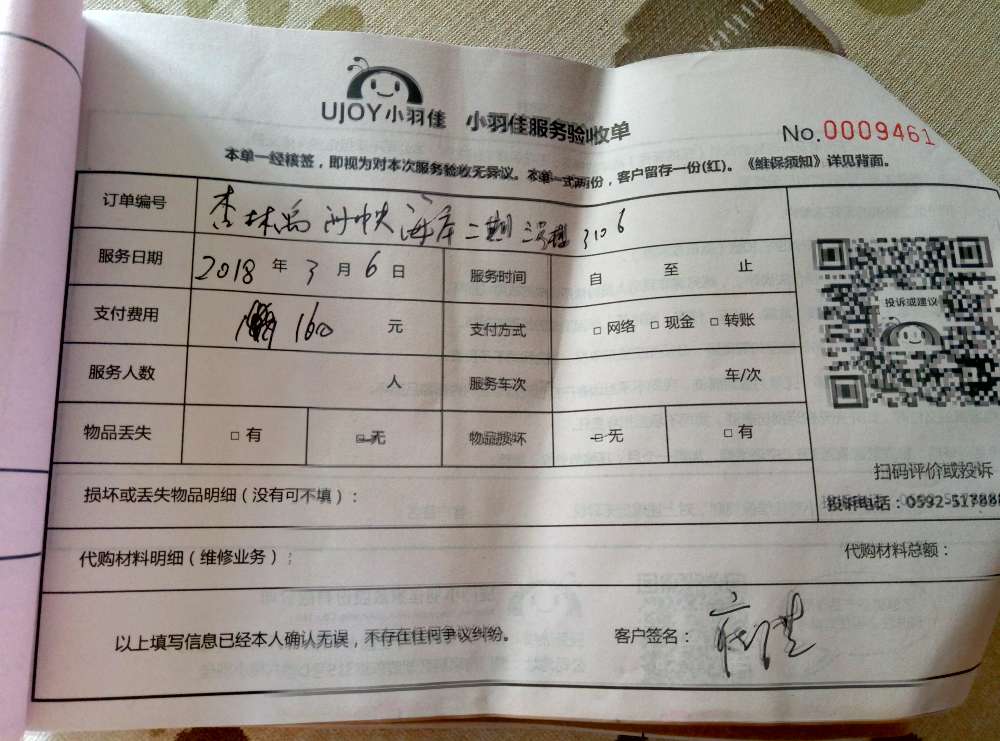 UJOY小羽佳 小羽佳服务验收单
No.0009461
本单一经核签，即视为对本次服务验收无异议。本单一式两份，客户留存一份(红)。《维保须知》详见背面。
订单编号 杏林 海岸二期 3106
服务日期 2018年3月6日 服务时间 自 至 止
支付费用 160 元 支付方式 □网络 □现金 □转账
投诉或建议
服务人数 人 服务车次 车/次
物品丢失 □有 □无 物品损坏 □无 □有
扫码评价或投诉
损坏或丢失物品明细（没有可不填）：
投诉电话：0592-517888
代购材料明细（维修业务）： 代购材料总额：
以上填写信息已经本人确认无误，不存在任何争议纠纷。 客户签名：